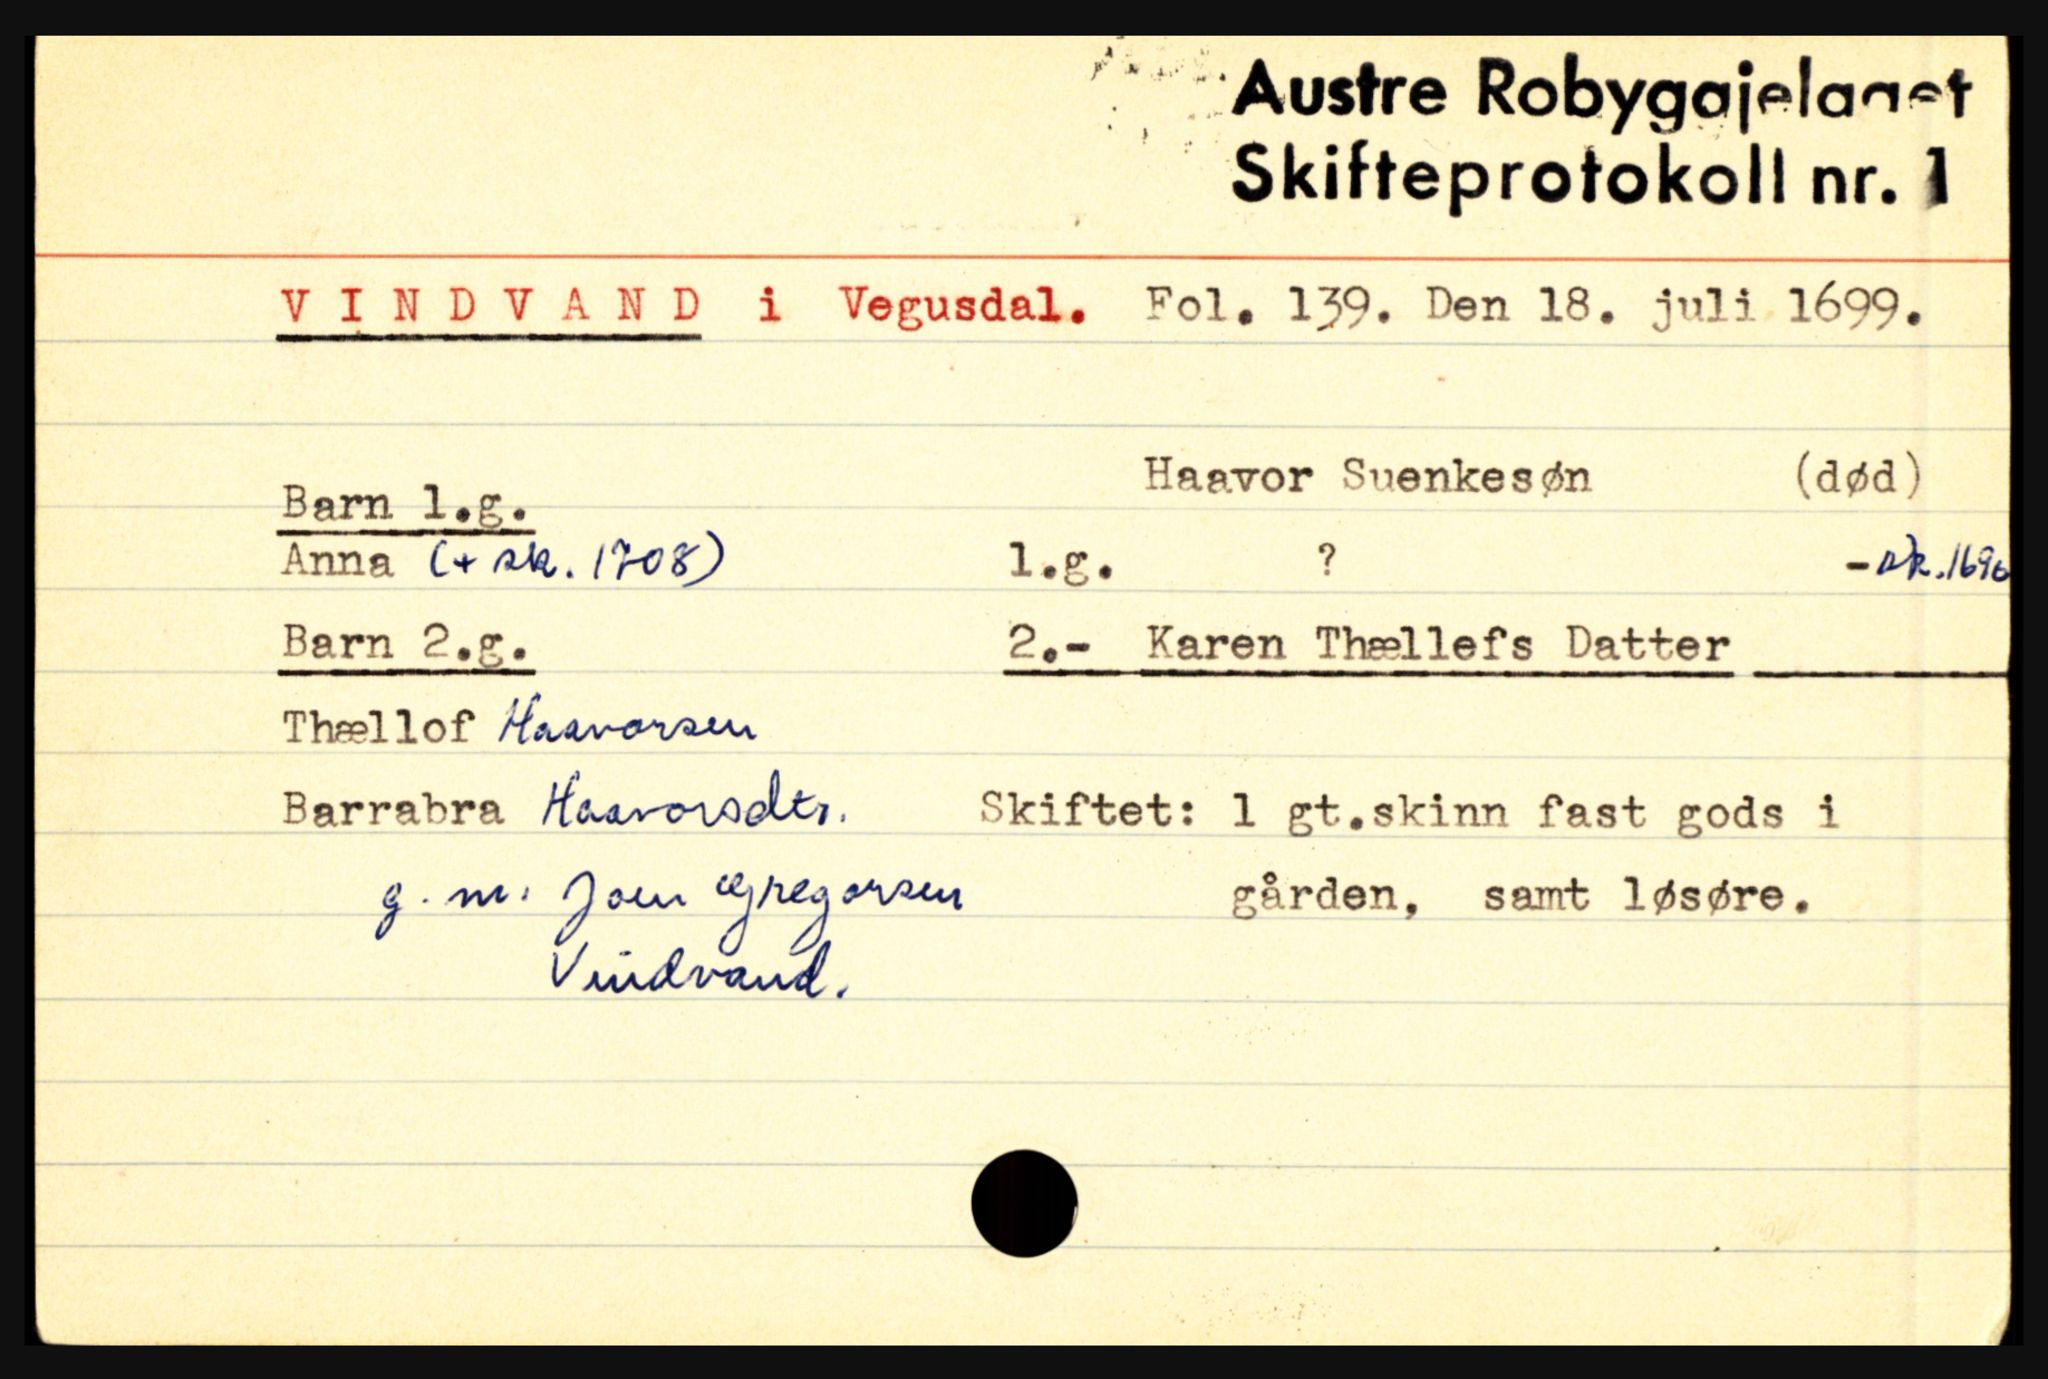 Austre Robygdjelaget
Skifteprotokoll nr. 1
VINDVAND i Vegusdal. Fol. 139. Den 18. juli 1699.
Haavor Suenkesøn (død)
Barn 1.g.
Anna (+ sk. 1708) 1.g. ? - sk. 1696
Barn 2.g. 2.- Karen Thællefs Datter
Thællof Haavorsen
Barrabra Haavorsdtr. Skiftet: 1 gt.skinn fast gods i
g. m. Joen Gregorsen gården, samt løsøre.
Vindvand.